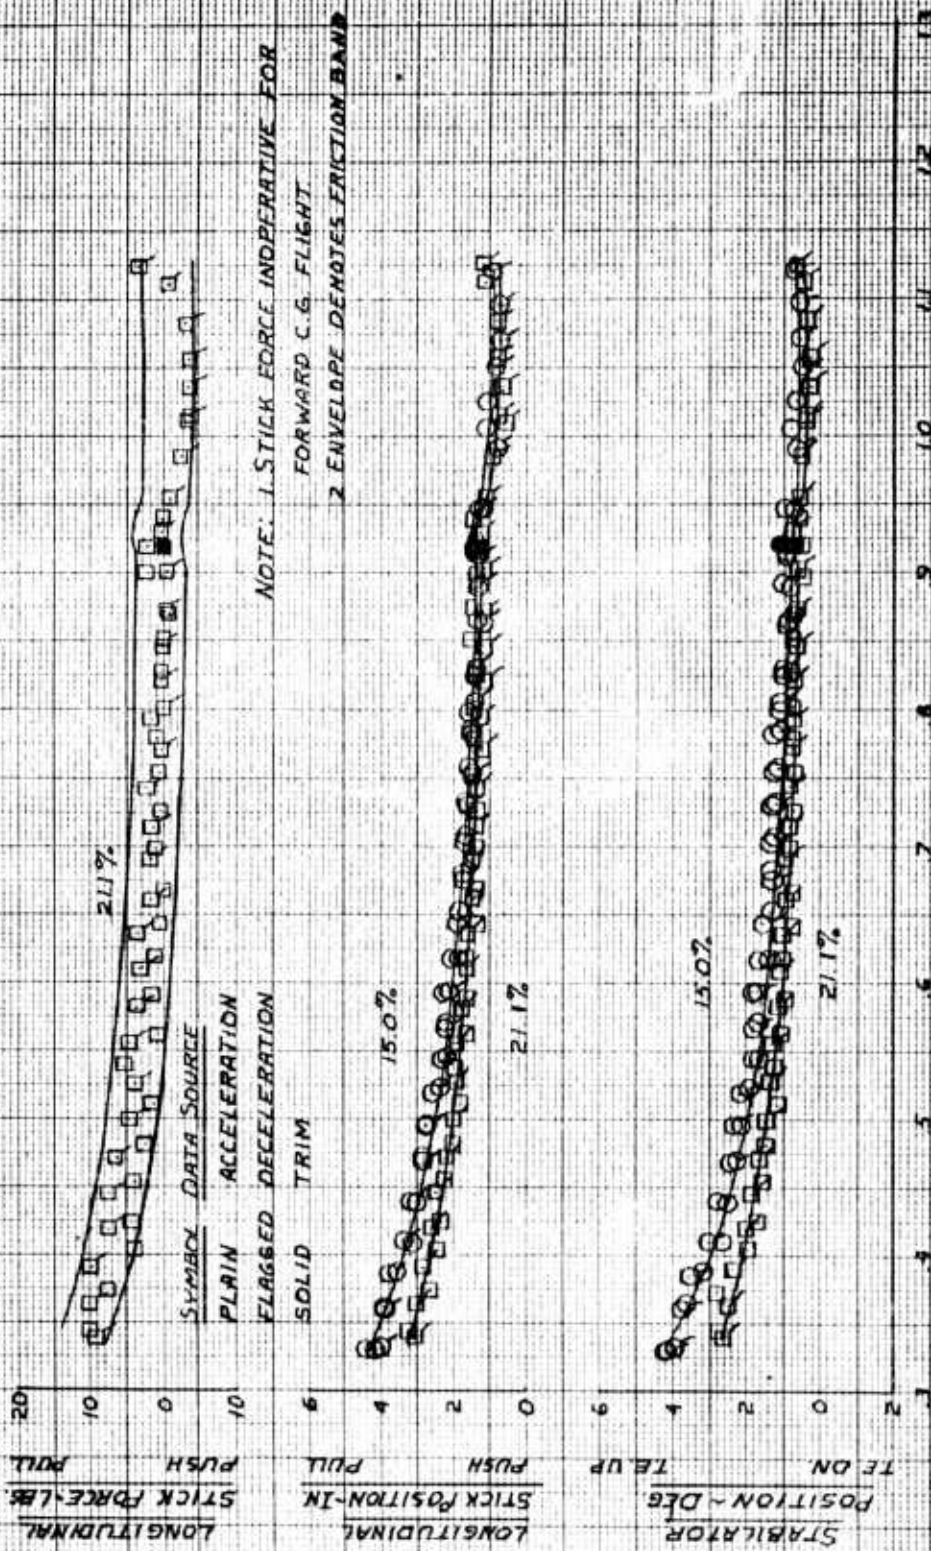 LONGITUDINAL
STICK FORCE-LBS
PUSH PULL
20
10
0
10
21.1%
SYMBOL DATA SOURCE
PLAIN ACCELERATION
FLAGGED DECELERATION
SOLID TRIM
NOTE: 1. STICK FORCE INOPERATIVE FOR
FORWARD C.G. FLIGHT.
2 ENVELOPE DENOTES FRICTION BAND
LONGITUDINAL
STICK POSITION-IN
PUSH PULL
6
4
2
0
15.0%
21.1%
STABILATOR
POSITION ~ DEG
T.E. DN. T.E. UP
6
4
2
0
2
15.0%
21.1%
.3 .4 .5 .6 .7 .8 .9 1.0 1.1 1.2 1.3